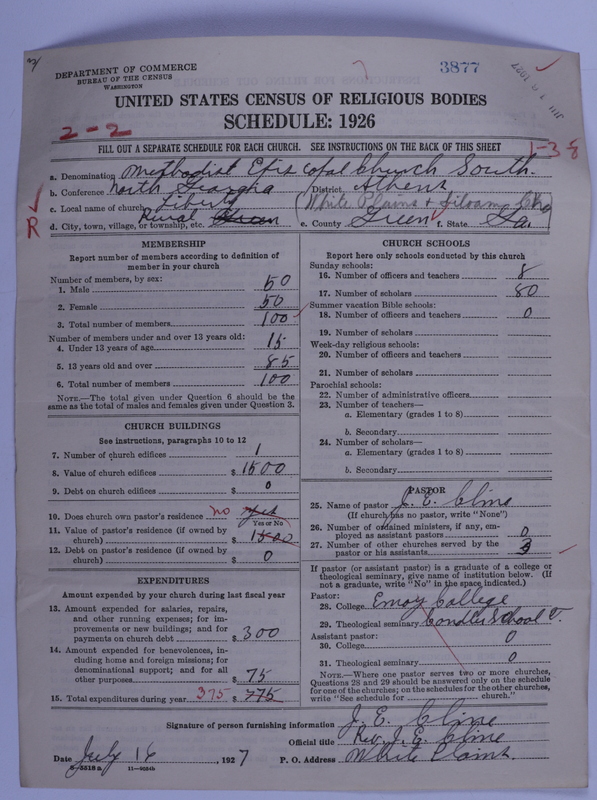 DEPARTMENT OF COMMERCE
BUREAU OF THE CENSUS
WASHINGTON
3877
UNITED STATES CENSUS OF RELIGIOUS BODIES
SCHEDULE: 1926
2-2
FILL OUT A SEPARATE SCHEDULE FOR EACH CHURCH. SEE INSTRUCTIONS ON THE BACK OF THIS SHEET
1-38
a. Denomination Methodist Episcopal Church South.
b. Conference North Georgia District Athens
c. Local name of church Liberty (White Plains & Siloam Chg
R
d. City, town, village, or township, etc. Rural Green e. County Green f. State Ga.
MEMBERSHIP
Report number of members according to definition of member in your church
Number of members, by sex:
1. Male 50
2. Female 50
3. Total number of members 100
Number of members under and over 13 years old:
4. Under 13 years of age 15
5. 13 years old and over 85
6. Total number of members 100
NOTE.—The total given under Question 6 should be
same as the total of males and females given under Question 3.
CHURCH BUILDINGS
See instructions, paragraphs 10 to 12
7. Number of church edifices 1
8. Value of church edifices $ 1500
9. Debt on church edifices $ 0
10. Does church own pastor's residence no yes
Yes or No
11. Value of pastor's residence (if owned by
church) $ 1500
12. Debt on pastor's residence (if owned by
church) $ 0
EXPENDITURES
Amount expended by your church during last fiscal year
13. Amount expended for salaries, repairs,
and other running expenses; for im-
provements or new buildings; and for
payments on church debt $ 300
14. Amount expended for benevolences, in-
cluding home and foreign missions; for
denominational support; and for all
other purposes $ 75
15. Total expenditures during year 375 $ 775
CHURCH SCHOOLS
Report here only schools conducted by this church
Sunday schools:
16. Number of officers and teachers 8
17. Number of scholars 80
Summer vacation Bible schools:
18. Number of officers and teachers 0
19. Number of scholars
Week-day religious schools:
20. Number of officers and teachers
21. Number of scholars
Parochial schools:
22. Number of administrative officers
23. Number of teachers—
a. Elementary (grades 1 to 8)
b. Secondary
24. Number of scholars—
a. Elementary (grades 1 to 8)
b. Secondary
PASTOR
25. Name of pastor J. E. Cline
(If church has no pastor, write "None")
26. Number of ordained ministers, if any, em-
ployed as assistant pastors 0
27. Number of other churches served by the
pastor or his assistants 3
If pastor (or assistant pastor) is a graduate of a college or
theological seminary, give name of institution below. (If
not a graduate, write "No" in the space indicated.)
Pastor:
28. College Emory College
29. Theological seminary Candler School T.
Assistant pastor:
30. College 0
31. Theological seminary 0
NOTE.—Where one pastor serves two or more churches,
Questions 28 and 29 should be answered only on the schedule
for one of the churches; on the schedules for the other churches,
write "See schedule for church."
Signature of person furnishing information J. E. Cline
Official title Rev. J. E. Cline
Date July 16, 1927 P. O. Address White Plains.
11—9024b